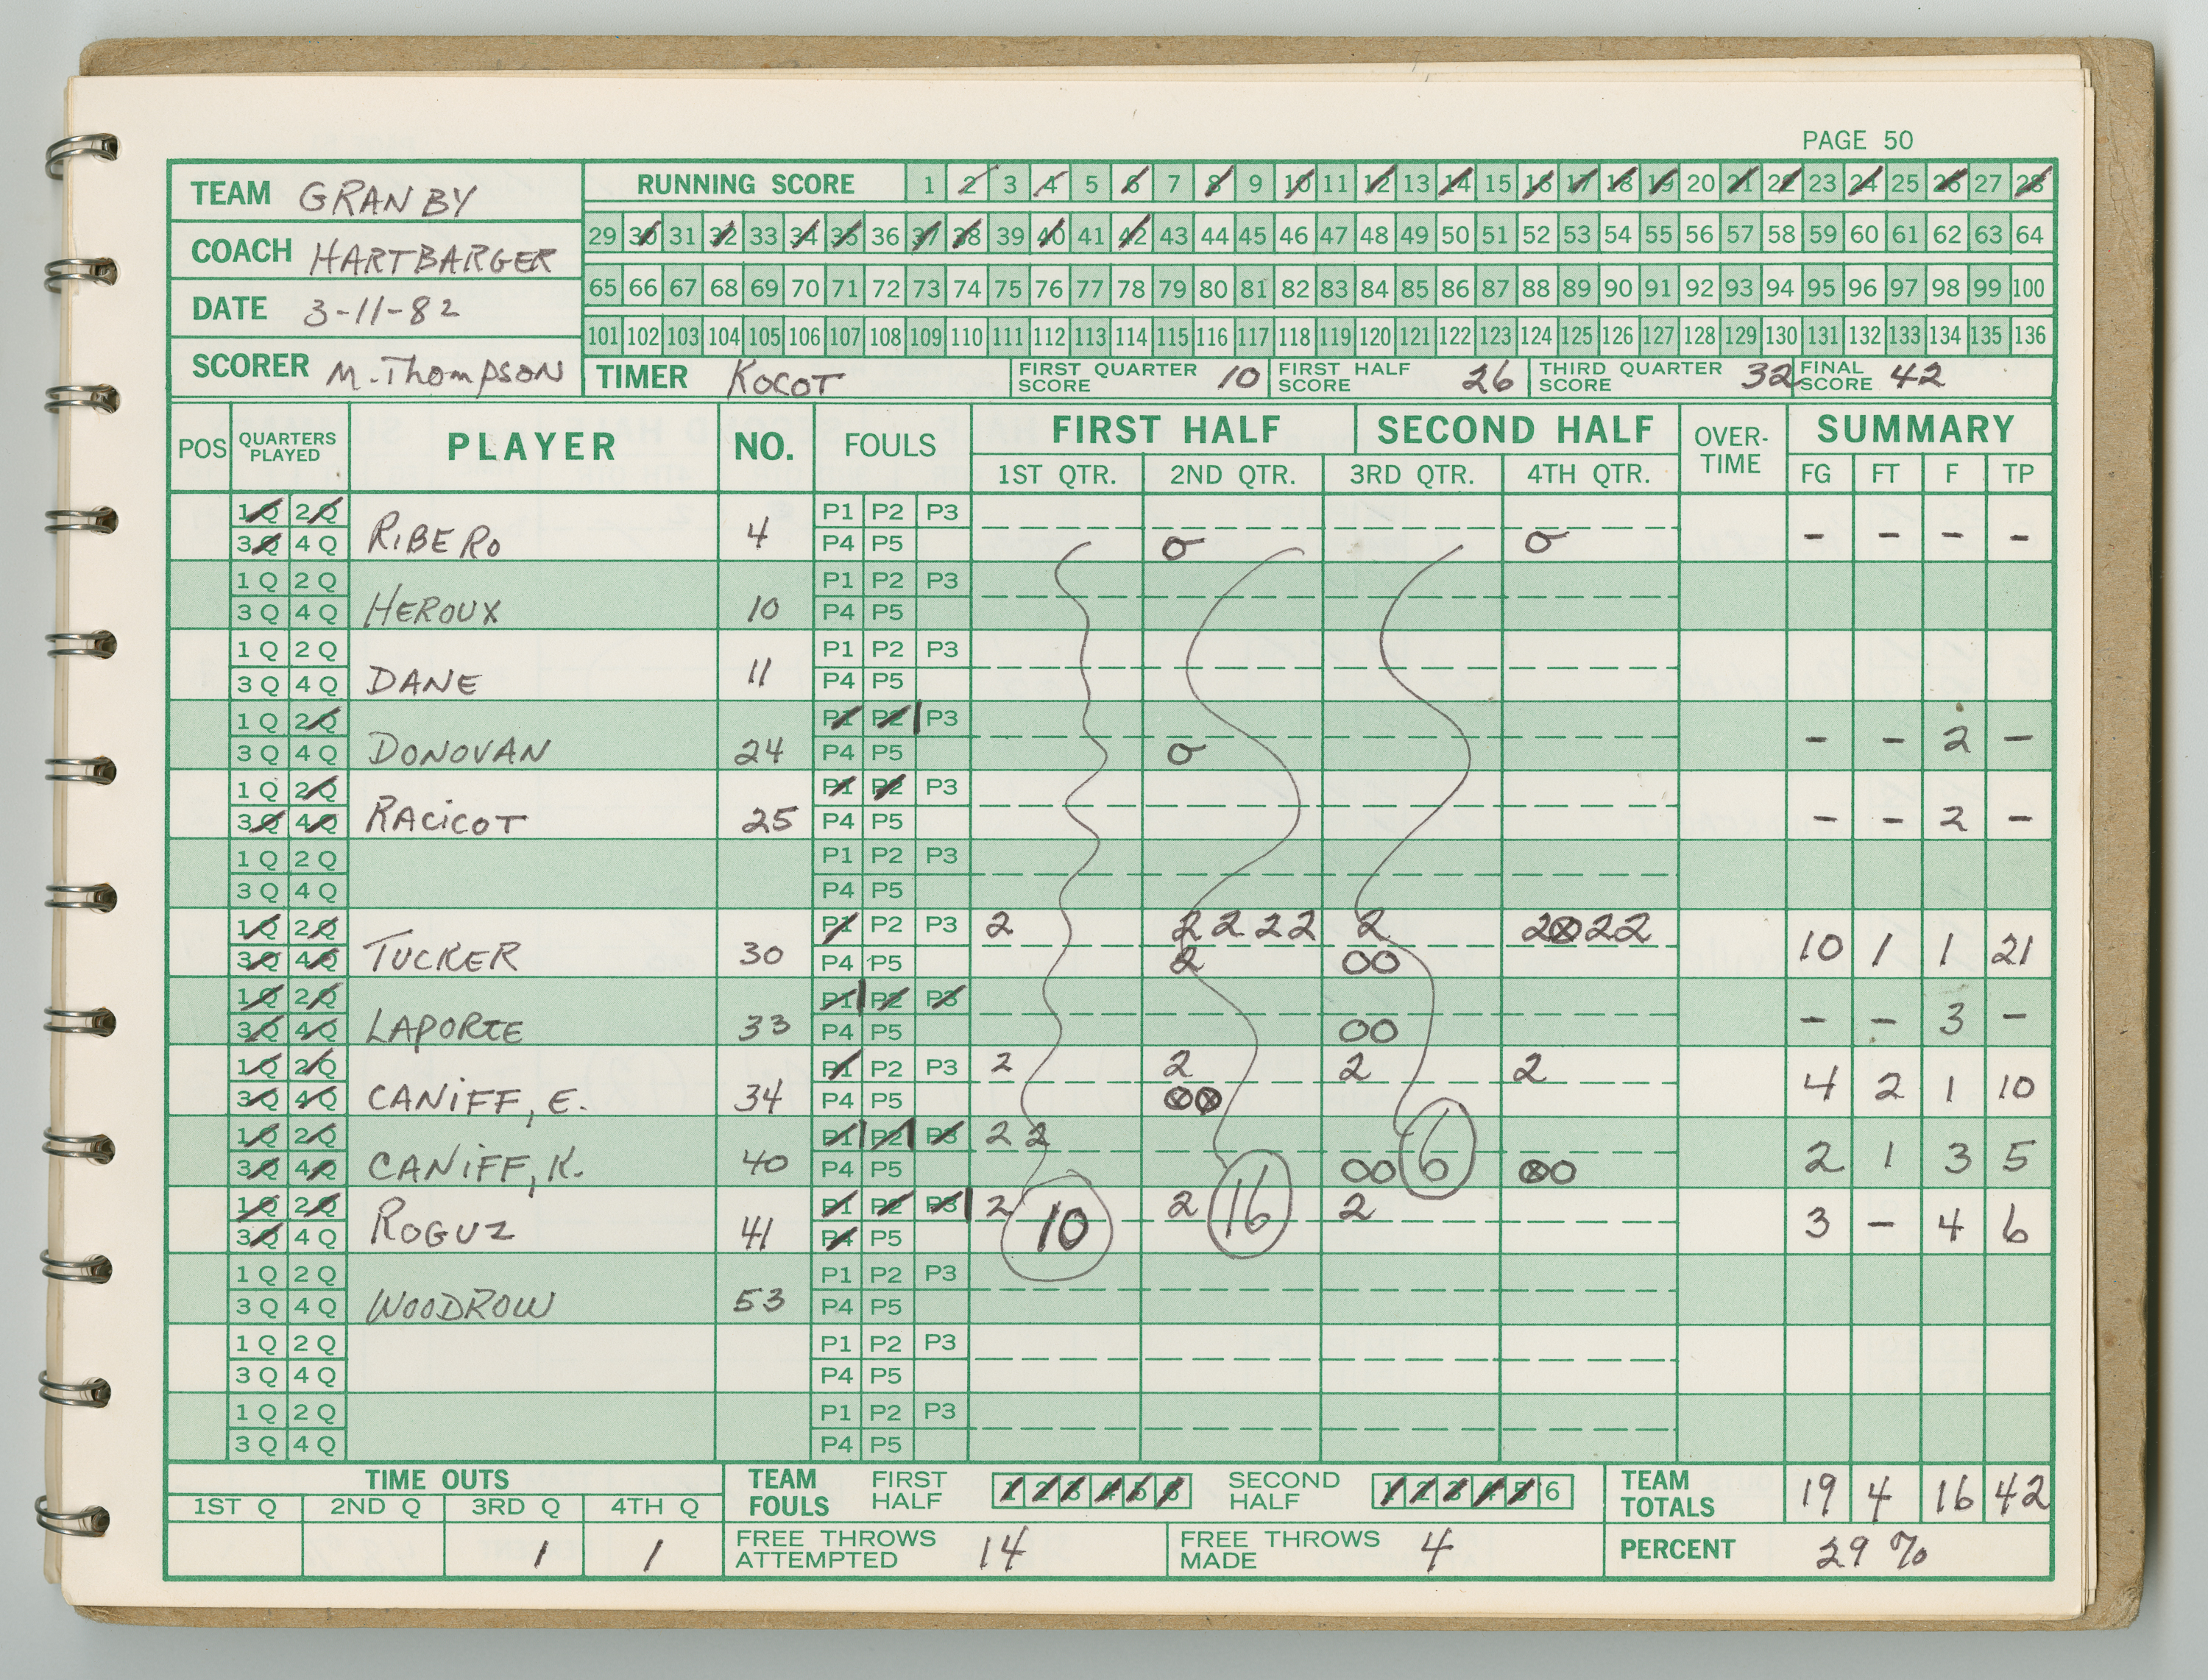 PAGE 50
TEAM GRANBY
COACH HARTBARGER
DATE 3-11-82
SCORER M. THOMPSON
RUNNING SCORE 1 2 3 4 5 6 7 8 9 10 11 12 13 14 15 16 17 18 19 20 21 22 23 24 25 26 27 28
29 30 31 32 33 34 35 36 37 38 39 40 41 42 43 44 45 46 47 48 49 50 51 52 53 54 55 56 57 58 59 60 61 62 63 64
65 66 67 68 69 70 71 72 73 74 75 76 77 78 79 80 81 82 83 84 85 86 87 88 89 90 91 92 93 94 95 96 97 98 99 100
101 102 103 104 105 106 107 108 109 110 111 112 113 114 115 116 117 118 119 120 121 122 123 124 125 126 127 128 129 130 131 132 133 134 135 136
TIMER KOCOT FIRST QUARTER SCORE 10 FIRST HALF SCORE 26 THIRD QUARTER SCORE 32 FINAL SCORE 42
POS QUARTERS PLAYED PLAYER NO. FOULS FIRST HALF SECOND HALF OVER-TIME SUMMARY
1ST QTR. 2ND QTR. 3RD QTR. 4TH QTR. FG FT F TP
1Q 2Q P1 P2 P3
3Q 4Q RIBERO 4 P4 P5 O O - - - -
1Q 2Q P1 P2 P3
3Q 4Q HEROUX 10 P4 P5
1Q 2Q P1 P2 P3
3Q 4Q DANE 11 P4 P5
1Q 2Q P1 P2 P3
3Q 4Q DONOVAN 24 P4 P5 O - - 2 -
1Q 2Q P1 P2 P3
3Q 4Q RACICOT 25 P4 P5 - - 2 -
1Q 2Q P1 P2 P3
3Q 4Q P4 P5
1Q 2Q P1 P2 P3 2 2 2 2 2 2 2 ⊗ 2 2
3Q 4Q TUCKER 30 P4 P5 2 O O 10 1 1 21
1Q 2Q P1 P2 P3
3Q 4Q LAPORTE 33 P4 P5 O O - - 3 -
1Q 2Q P1 P2 P3 2 2 2 2
3Q 4Q CANIFF, E. 34 P4 P5 ⊗ ⊗ 4 2 1 10
1Q 2Q P1 P2 P3 2 2
3Q 4Q CANIFF, K. 40 P4 P5 O O 6 ⊗ O 2 1 3 5
1Q 2Q P1 P2 P3 2 2 2
3Q 4Q ROGUZ 41 P4 P5 10 16 3 - 4 6
1Q 2Q P1 P2 P3
3Q 4Q WOODROW 53 P4 P5
1Q 2Q P1 P2 P3
3Q 4Q P4 P5
1Q 2Q P1 P2 P3
3Q 4Q P4 P5
TIME OUTS TEAM FOULS FIRST HALF 1 2 3 4 5 6 SECOND HALF 1 2 3 4 5 6 TEAM TOTALS 19 4 16 42
1ST Q 2ND Q 3RD Q 4TH Q
1 1 FREE THROWS ATTEMPTED 14 FREE THROWS MADE 4 PERCENT 29%